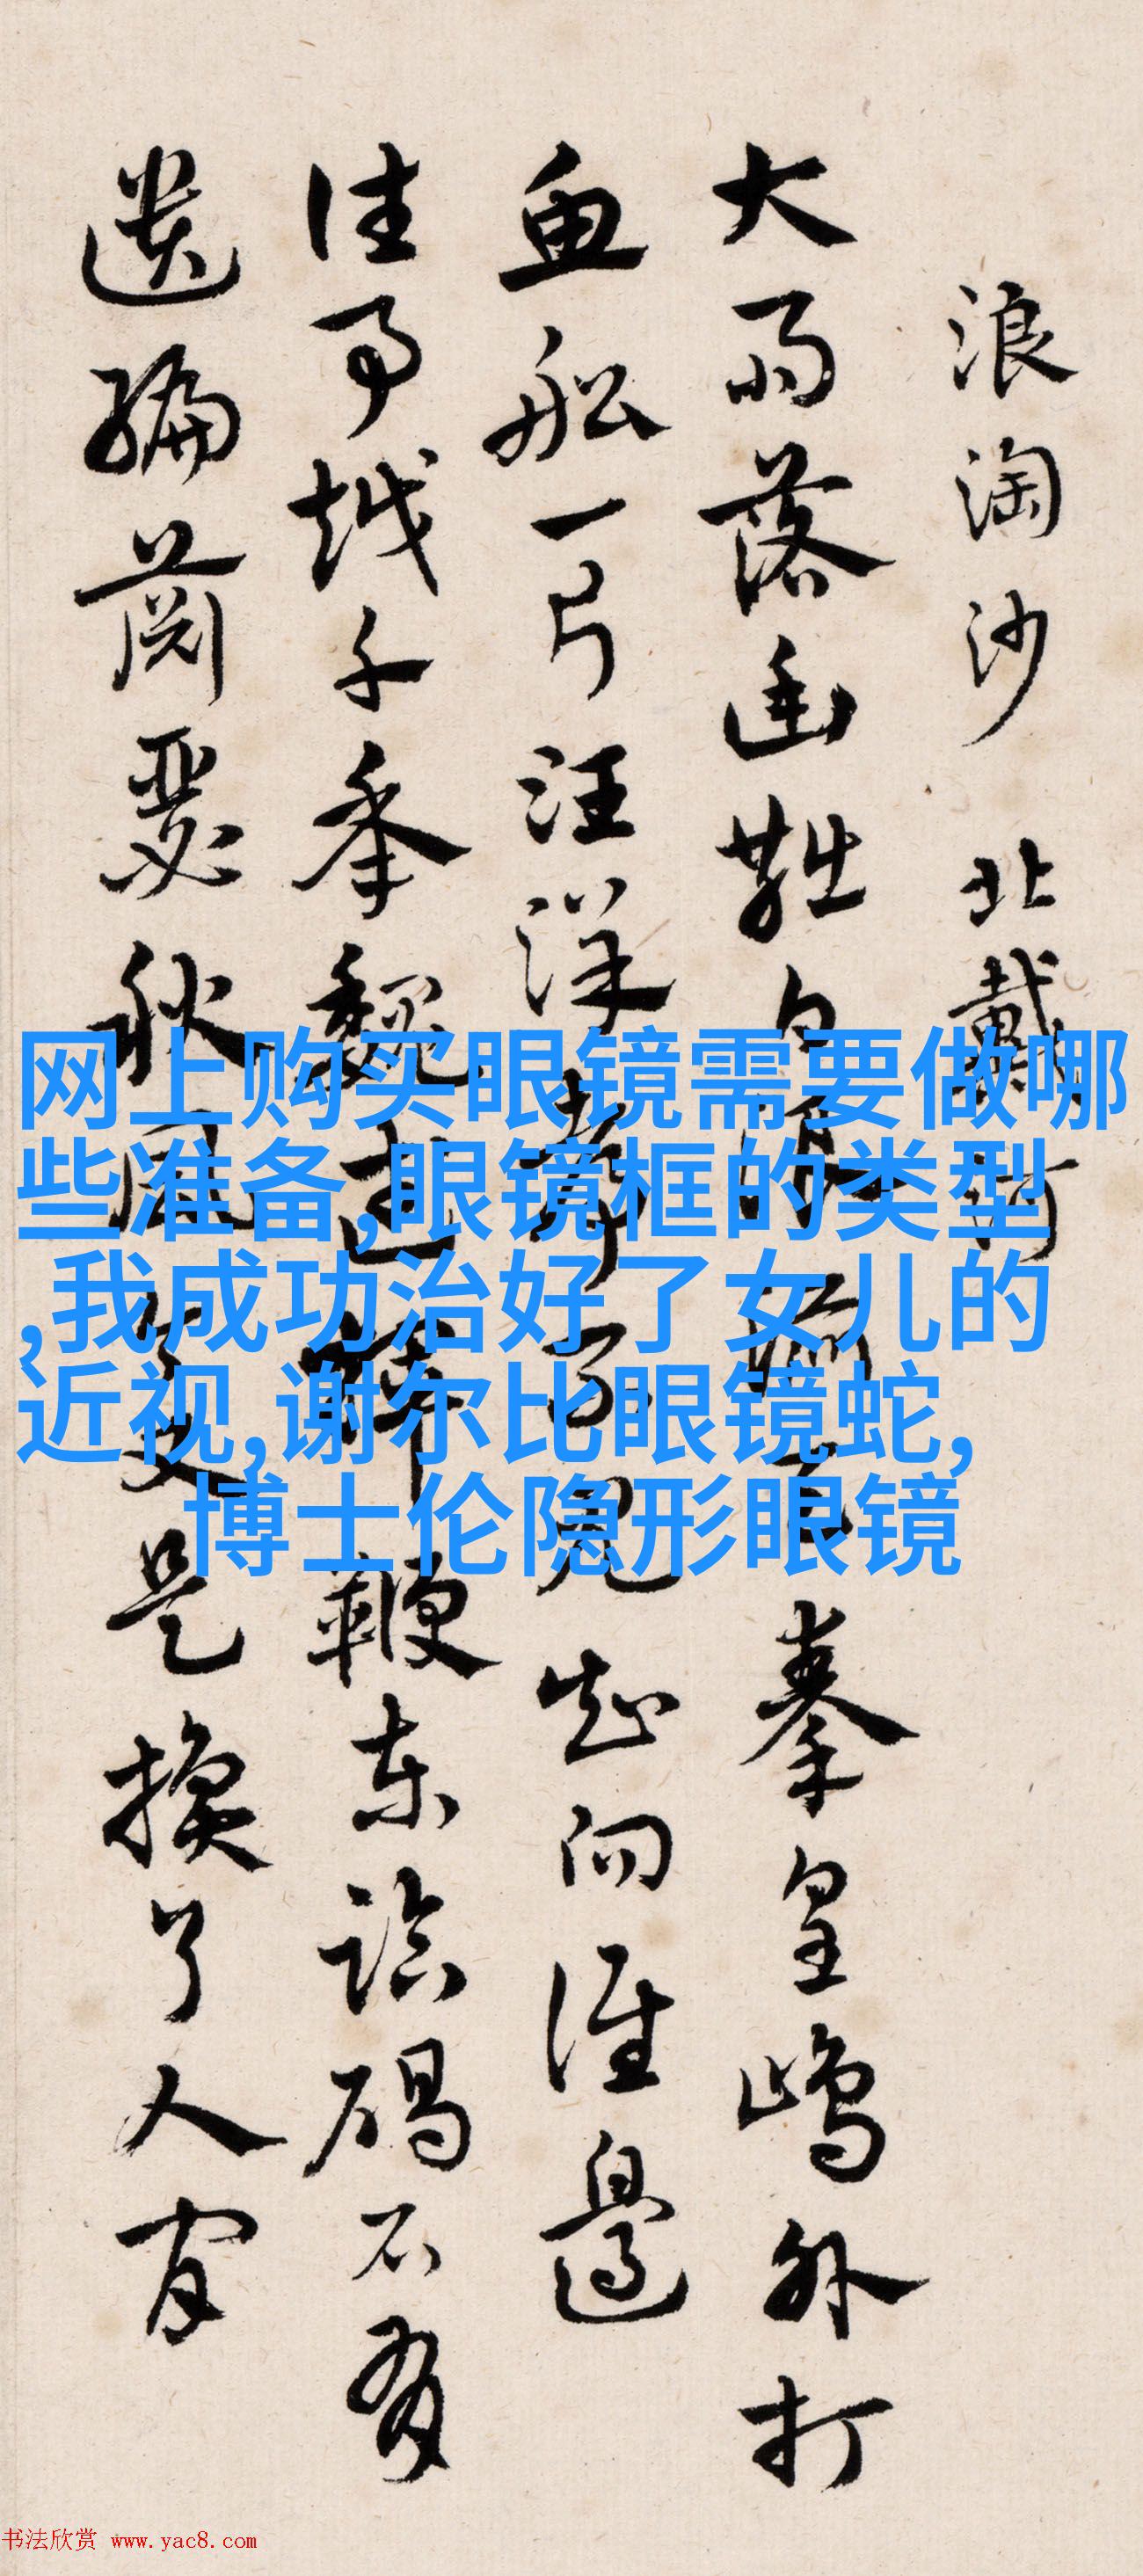 浪淘沙 北戴河
大雨落幽燕白浪滔天秦皇島外打
魚船一片汪洋都不見知向誰邊
往事越千秊魏武揮鞭東臨碣石有
遺編蕭瑟秋風今又是換了人間
网上购买眼镜需要做哪
些准备,眼镜框的类型
,我成功治好了女儿的
近视,谢尔比眼镜蛇,
博士伦隐形眼镜
书法欣赏 www.yac8.com